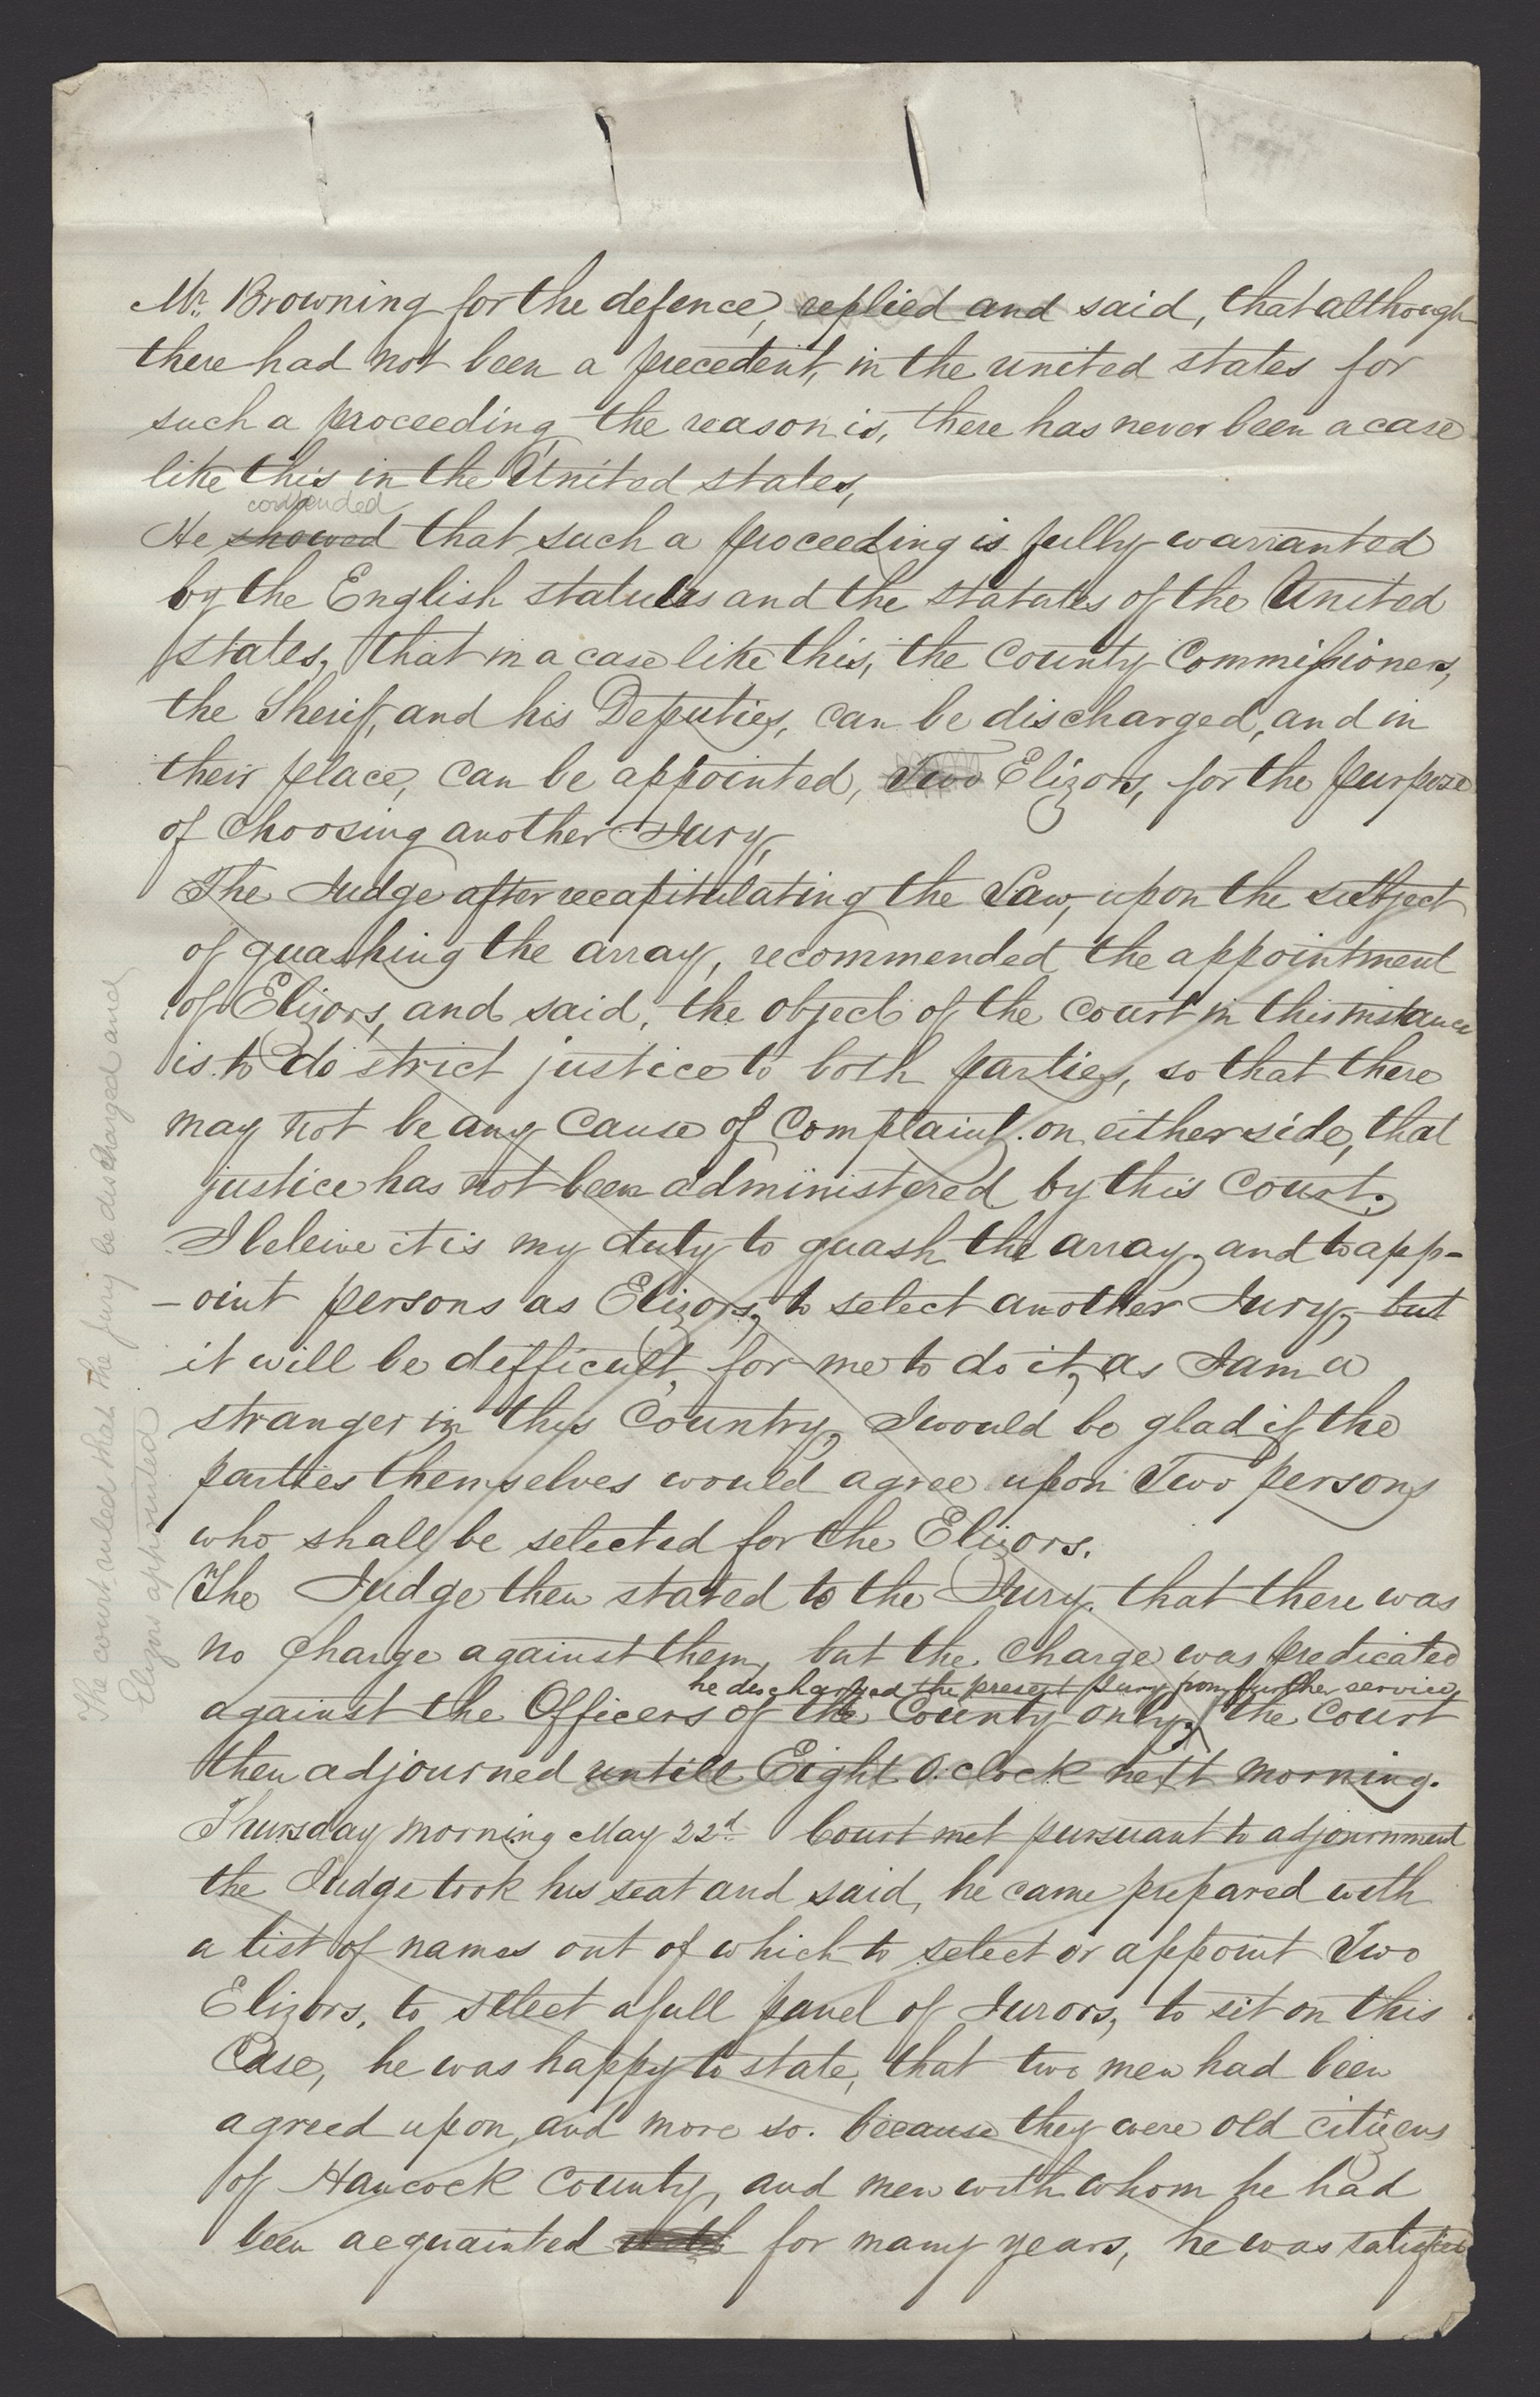 Mr. Browning for the defence, replied and said, that although
there had not been a precedent, in the united states for
such a proceeding the reason is, there has never been a case
like this in the United states,
contended
He showed that such a proceeding is fully warranted
by the English statutes and the statutes of the United
states, that in a case like this, the County Commissioners,
the Sherif, and his Deputies, can be discharged, and in
their place, can be appointed, Two Elizors, for the purpose
of choosing another Jury,
The Judge after recapitulating the Law, upon the subject
of quashing the array, recommended the appointment
of Elizors, and said, the object of the court in this instance
is to do strict justice to both parties, so that there
may not be any cause of Complaint on either side, that
justice has not been administered by this Court.
I beleive it is my duty to quash the array, and to app-
-oint persons as Elizors, to select another Jury, but
it will be difficult, for me to do it, as I am a
stranger in this Country, I would be glad if the
parties themselves would agree upon Two persons
who shall be selected for the Elizors.
The Judge then stated to the Jury, that there was
no charge against them, but the charge was predicated
he discharged the present Jury from further service,
against the Officers of the County only, the Court
then adjourned untill Eight O.clock next morning.
Thursday morning May 22d. Court met pursuant to adjournment
the Judge took his seat and said, he came prepared with
a list of names out of which to select or appoint Two
Elizors, to select a full panel of Jurors, to sit on this
Case, he was happy to state, that two men had been
agreed upon, and more so. because they were old citizens
of Hancock County, and men with whom he had
been acquainted with for many years, he was satisfied
The court ruled that the jury be discharged and
Elizors appointed